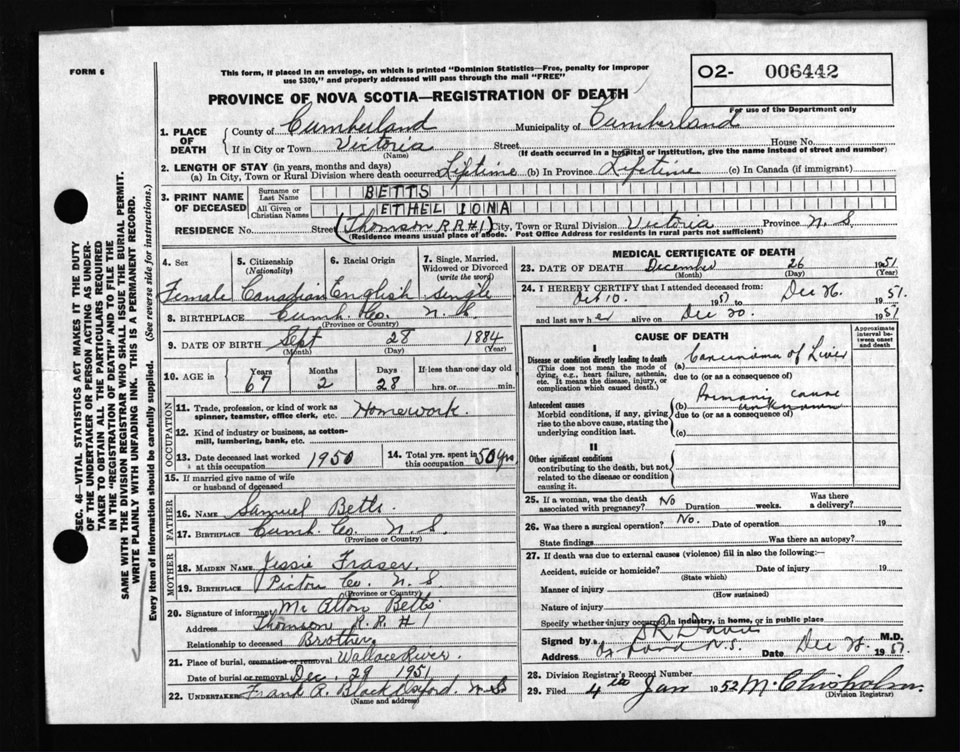 FORM 6
This form, if placed in an envelope, on which is printed "Dominion Statistics—Free, penalty for improper
use $300," and properly addressed will pass through the mail "FREE"
PROVINCE OF NOVA SCOTIA—REGISTRATION OF DEATH
O2- 006442
For use of the Department only
SEC. 46—VITAL STATISTICS ACT MAKES IT THE DUTY
OF THE UNDERTAKER OR PERSON ACTING AS UNDER-
TAKER TO OBTAIN ALL THE PARTICULARS REQUIRED
IN THE "REGISTRATION OF DEATH" AND TO FILE THE
SAME WITH THE DIVISION REGISTRAR WHO SHALL ISSUE THE BURIAL PERMIT.
WRITE PLAINLY WITH UNFADING INK. THIS IS A PERMANENT RECORD.
Every item of information should be carefully supplied. (See reverse side for instructions.)
1. PLACE OF DEATH
County of Cumberland Municipality of Cumberland
If in City or Town Victoria Street House No.
(Name) (If death occurred in a hospital or institution, give the name instead of street and number)
2. LENGTH OF STAY (in years, months and days)
(a) In City, Town or Rural Division where death occurred Lifetime (b) In Province Lifetime (c) In Canada (if immigrant)
3. PRINT NAME OF DECEASED
Surname or Last Name BETTS
All Given or Christian Names ETHEL IONA
RESIDENCE No. Street (Thomson R R #1) City, Town or Rural Division Victoria Province N. S.
(Residence means usual place of abode. Post Office Address for residents in rural parts not sufficient)
4. Sex 5. Citizenship (Nationality) 6. Racial Origin 7. Single, Married, Widowed or Divorced (write the word)
Female Canadian English single
8. BIRTHPLACE Cumb. Co. N. S.
(Province or Country)
9. DATE OF BIRTH Sept 28 1884
(Month) (Day) (Year)
10. AGE in Years Months Days If less than one day old
67 2 28 hrs. or min.
OCCUPATION
11. Trade, profession, or kind of work as spinner, teamster, office clerk, etc. Homework.
12. Kind of industry or business, as cotton-mill, lumbering, bank, etc.
13. Date deceased last worked at this occupation 1950
14. Total yrs. spent in this occupation 50 yrs
15. If married give name of wife or husband of deceased
FATHER
16. NAME Samuel Betts.
17. BIRTHPLACE Cumb. Co. N. S.
(Province or Country)
MOTHER
18. MAIDEN NAME Jessie Fraser.
19. BIRTHPLACE Pictou Co. N. S
(Province or Country)
20. Signature of informant Mr Alton Betts
Address Thomson R. R. #1
Relationship to deceased Brother.
21. Place of burial, cremation or removal Wallace River.
Date of burial or removal Dec. 29 1951
22. UNDERTAKER Frank R. Black Oxford. N-S
(Name and address)
MEDICAL CERTIFICATE OF DEATH
23. DATE OF DEATH December 26 1951
(Month) (Day) (Year)
24. I HEREBY CERTIFY that I attended deceased from:
Oct 10. 1951 to Dec 26. 1951.
and last saw her alive on Dec 20. 1951
CAUSE OF DEATH
Approximate interval between onset and death
I
Disease or condition directly leading to death
(This does not mean the mode of dying, e.g., heart failure, asthenia, etc. It means the disease, injury, or complication which caused death.)
(a) Carcinoma of Liver
due to (or as a consequence of)
Antecedent causes
Morbid conditions, if any, giving rise to the above cause, stating the underlying condition last.
Primary cause
(b) unknown
due to (or as a consequence of)
(c)
II
Other significant conditions
contributing to the death, but not related to the disease or condition causing it.
25. If a woman, was the death associated with pregnancy? No Duration weeks. Was there a delivery?
26. Was there a surgical operation? No. Date of operation 19
State findings Was there an autopsy?
27. If death was due to external causes (violence) fill in also the following:—
Accident, suicide or homicide? Date of injury 19
(State which)
Manner of injury
(How sustained)
Nature of injury
Specify whether injury occurred in industry, in home, or in public place
Signed by S R Davis M.D.
Address Oxford N.S. Date Dec 26 1951
28. Division Registrar's Record Number
29. Filed 4th Jan 1952 M. Chisholm.
(Division Registrar)